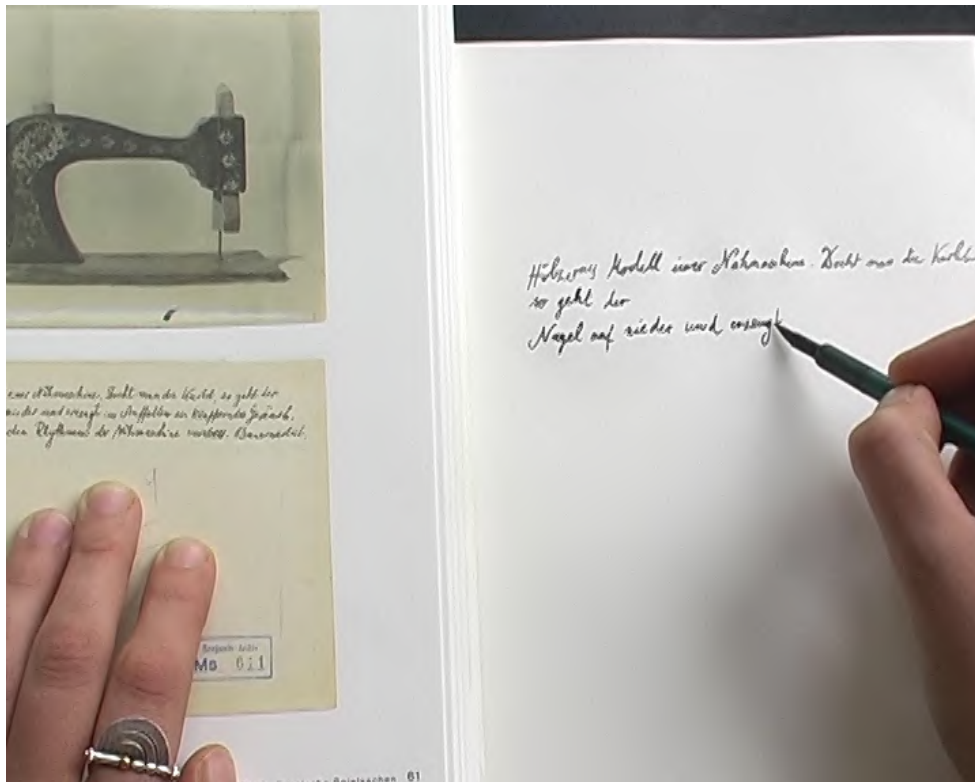 einer Nähmaschine. Dreht man die Kurbel, so geht der
nieder und erzeugt im Auffallen ein klapperndes Geräusch,
den Rhythmus der Nähmaschine
Benjamin-Archiv
Ms 611
61
Hölzernes Modell einer Nähmaschine. Dreht man die Kurbel
so geht der
Nagel auf nieder und erzeugt